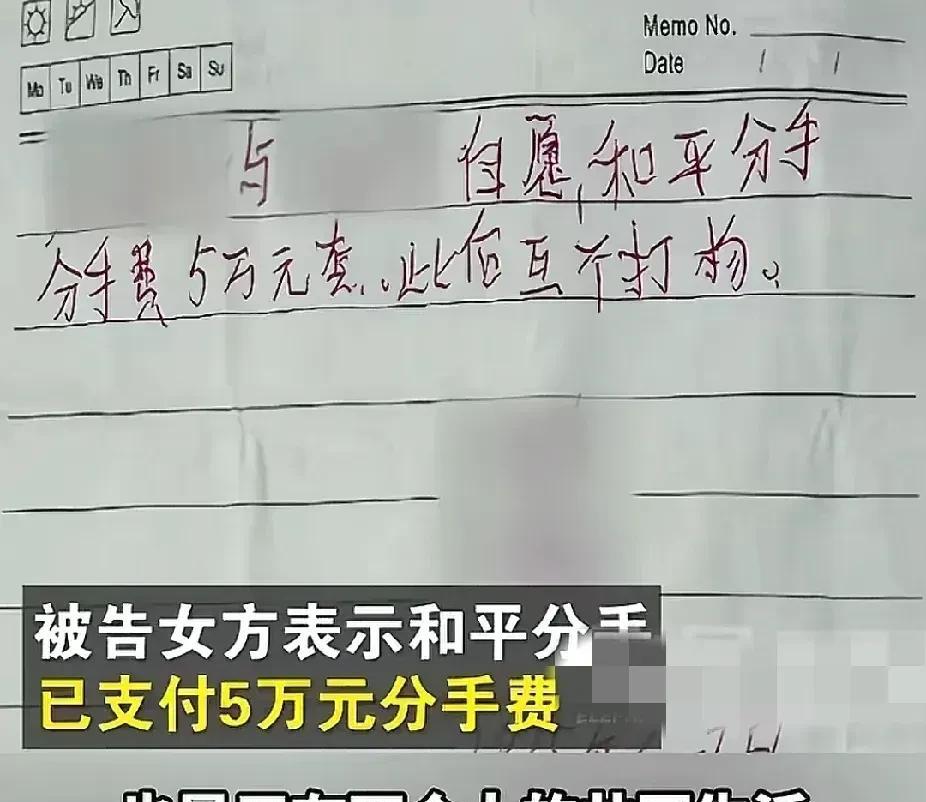 Memo No.
Date / /
Mo Tu We Th Fr Sa Su
与 自愿,和平分手
分手费5万元整.此后互不打扰。
被告女方表示和平分手
已支付5万元分手费